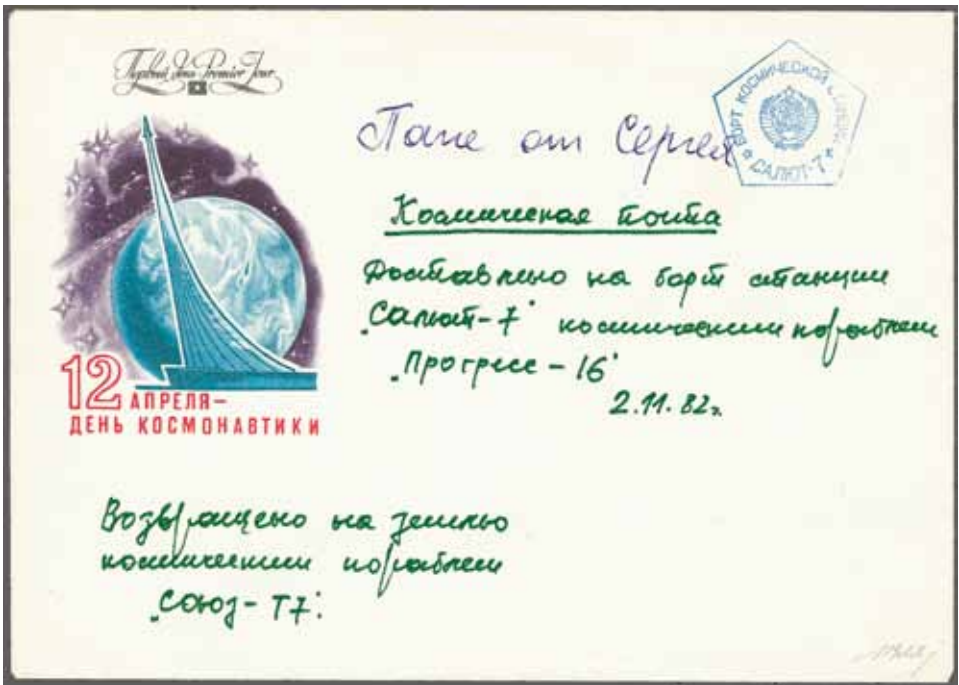 Первый День Premier Jour
БОРТ КОСМИЧЕСКОЙ
САЛЮТ-7
Папе от Сергея
Космическая почта
Доставлено на борт станции
„Салют-7" космическим кораблем
„Прогресс-16"
2.11.82г.
12 АПРЕЛЯ–
ДЕНЬ КОСМОНАВТИКИ
Возвращено на землю
космическим кораблем
„Союз-Т7".